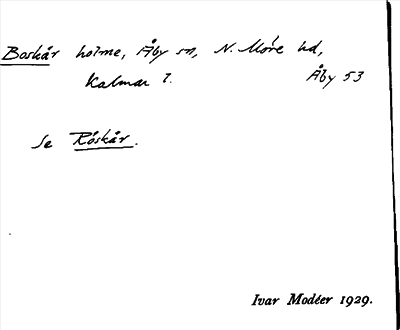 Boskår holme, Åby sn, N. Möre hd,
Kalmar l. Åby 53
Se Röskår.
Ivar Modéer 1929.